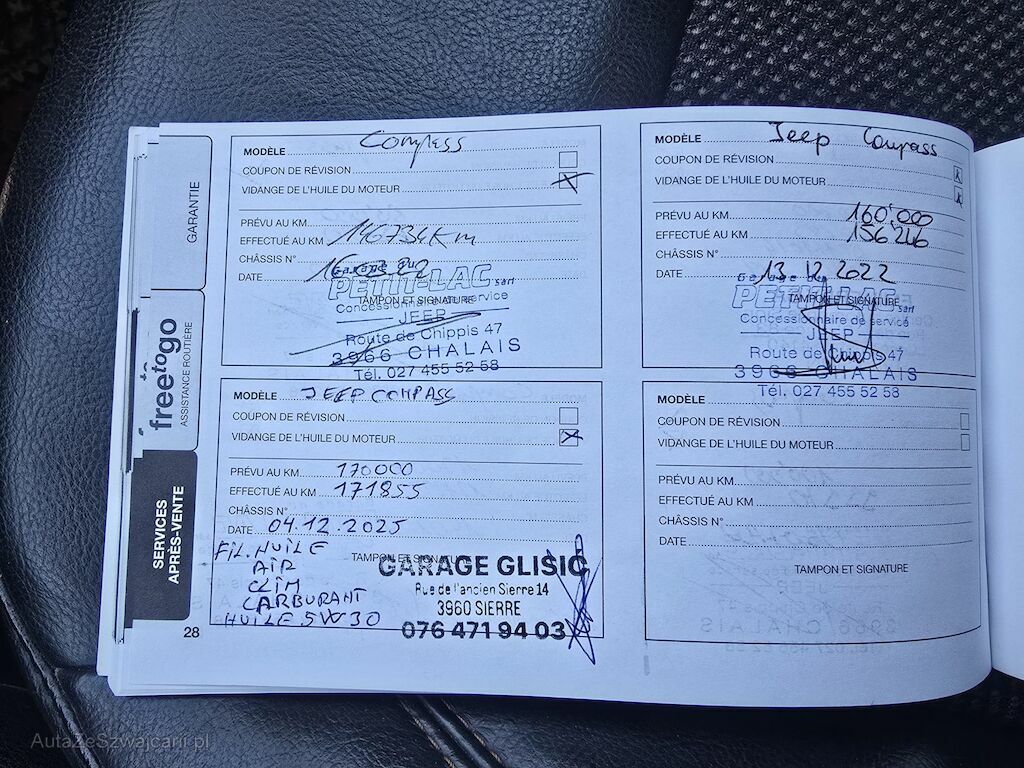 GARANTIE
freetogo
ASSISTANCE ROUTIÈRE
SERVICES
APRÈS-VENTE
MODÈLE Compass
COUPON DE RÉVISION
VIDANGE DE L'HUILE DU MOTEUR X
PRÉVU AU KM
EFFECTUÉ AU KM 146734 Km
CHÂSSIS N°
DATE
PETIT-LAC sàrl
TAMPON ET SIGNATURE
Concessionnaire de service
JEEP
Route de Chippis 47
3966 CHALAIS
Tél. 027 455 52 58
MODÈLE Jeep Compass
COUPON DE RÉVISION X
VIDANGE DE L'HUILE DU MOTEUR X
PRÉVU AU KM 160'000
EFFECTUÉ AU KM 156'246
CHÂSSIS N°
DATE 13.12.2022
Garage du
PETIT-LAC sàrl
TAMPON ET SIGNATURE
Concessionnaire de service
JEEP
Route de Chippis 47
3966 CHALAIS
Tél. 027 455 52 58
MODÈLE JEEP COMPASS
COUPON DE RÉVISION
VIDANGE DE L'HUILE DU MOTEUR X
PRÉVU AU KM 170000
EFFECTUÉ AU KM 171855
CHÂSSIS N°
DATE 04.12.2025
FIL. HUILE
AIR
CLIM
CARBURANT
HUILE 5W30
TAMPON ET SIGNATURE
GARAGE GLISIC
Rue de l'ancien Sierre 14
3960 SIERRE
076 471 94 03
MODÈLE
COUPON DE RÉVISION
VIDANGE DE L'HUILE DU MOTEUR
PRÉVU AU KM
EFFECTUÉ AU KM
CHÂSSIS N°
DATE
TAMPON ET SIGNATURE
28
AutaZeSzwajcarii.pl